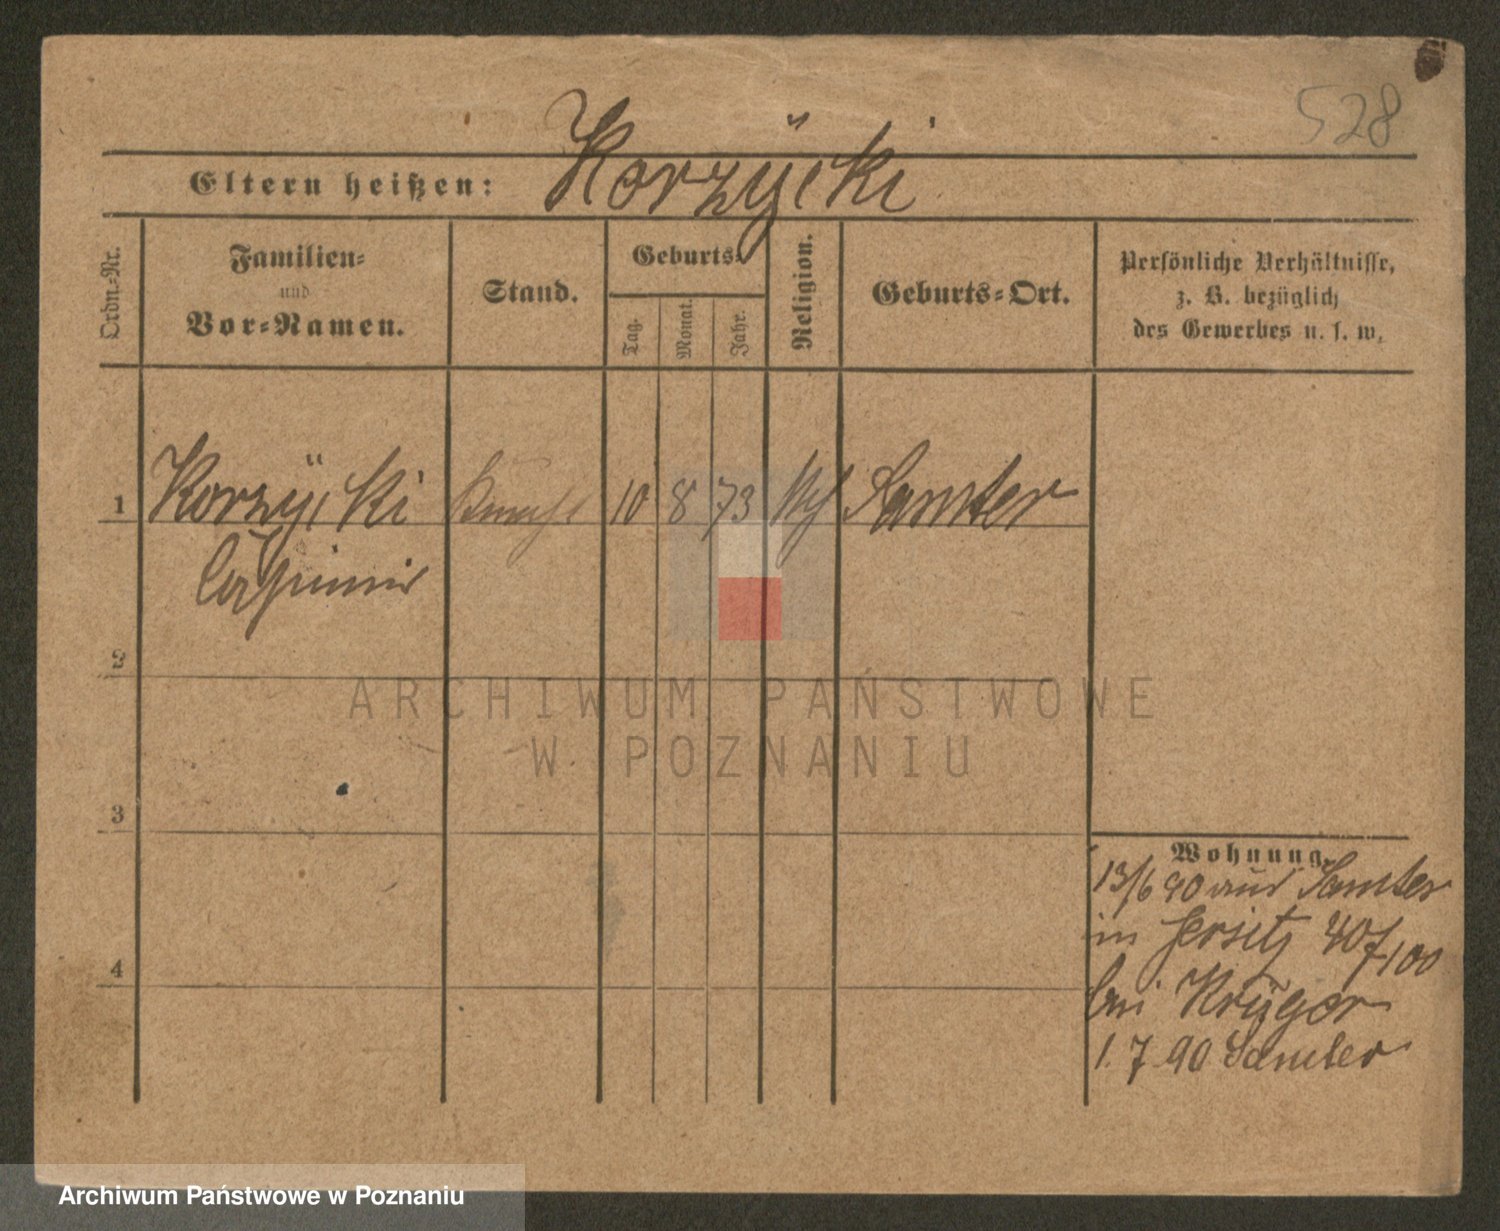 528
Eltern heißen: Korzÿcki
Ordn.-Nr.
Familien-
und
Vor-Namen.
Stand.
Geburts-
Tag.
Monat.
Jahr.
Religion.
Geburts-Ort.
Persönliche Verhältnisse,
z. B. bezüglich
des Gewerbes u. s. w.
1 Korzÿcki Knecht 10 8 73 Samter
Casimir
2
3
4
Wohnung.
13/6 90 aus Samter
in Jersitz 40/100
bei Krüger
1. 7. 90 Samter
ARCHIWUM PAŃSTWOWE
W POZNANIU
Archiwum Państwowe w Poznaniu